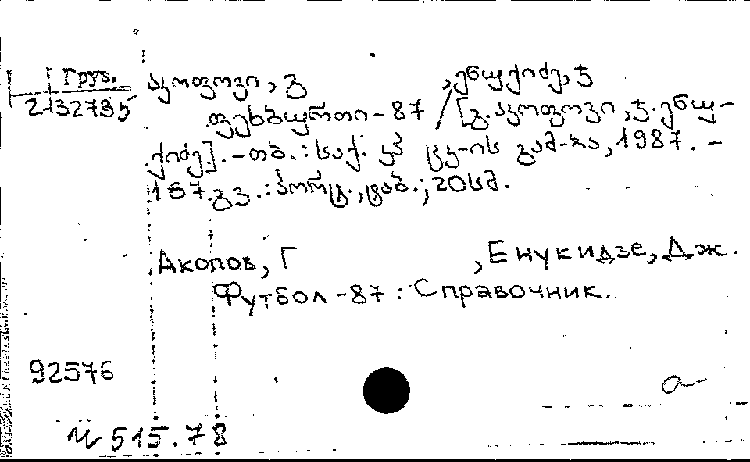 Груз.
2132785
აკოფოვი, გ , ენუქიძე, ჯ
ფეხბურთი-87 / [გ. აკოფოვი, ჯ. ენუ-
ქიძე]. - თბ. : საქ. კპ ცკ-ის გამ-ბა, 1987. -
167 გვ. : პორტ., ტაბ. ; 20 სმ.
Акопов, Г , Енукидзе, Дж.
Футбол-87 : Справочник.
92576
и 515.78